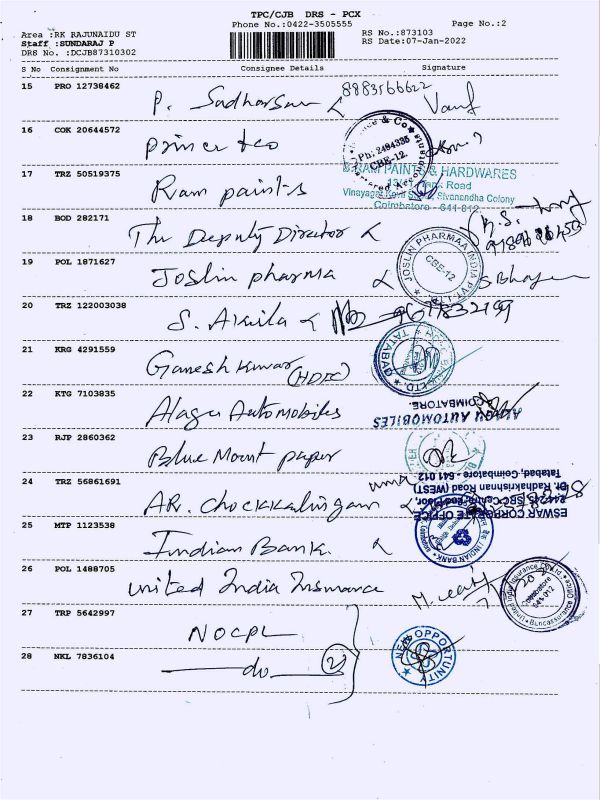 TPC/CJB DRS - PCX
Phone No.:0422-3505555
Page No.:2
Area :RK RAJUNAIDU ST
Staff :SUNDARAJ P
DRS No. :DCJB87310302
RS No.:873103
RS Date:07-Jan-2022
S No Consignment No Consignee Details Signature
15 PRO 12738462 P. Sadharsan 8883566622
16 COK 20644572 Prince & co
& Co
Ph: 2484335
CBE-12.
17 TRZ 50519375 Ram paints
PAINTS & HARDWARES
Tank Road
Sivanandha Colony
Coimbatore - 641 012.
18 BOD 282171 The Deputy Director
19 POL 1871627 Joslin pharma
JOSLIN PHARMAA INDIA PVT LTD
CBE-12
20 TRZ 122003038 S. Akila
21 KRG 4291559 Ganesh kumar
(HDFC)
TATABAD
22 KTG 7103835 Alagu Automobiles
AUTOMOBILES
COIMBATORE.
23 RJP 2860362 Blue Mount paper
24 TRZ 56861691 AR. Chockkalingam
ESWAR CORPORATE OFFICE
Dr. Radhakrishnan Road (WEST)
Tatabad, Coimbatore - 641 012
25 MTP 1123538 Indian Bank.
INDIAN BANK
26 POL 1488705 United India Insurance
Coimbatore
641 012
27 TRP 5642997 NOCPL
28 NKL 7836104 do (2)
NEW OPPORTUNITY